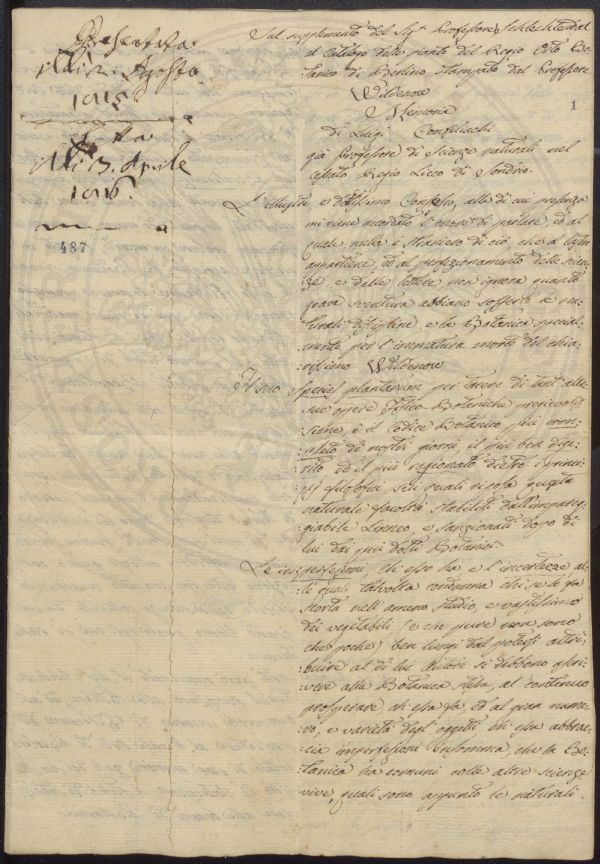 Presentata
Agosto
1815
Letta
Aprile
1816.
487
Sul supplemento del Sig.r Professore Schlechtendal
al Catalogo delle piante del Regio Orto Bo-
tanico di Berlino stampato dal Professore
Wildenow
1
Memoria
di Luigi Configliachi
già Professore di Scienze naturali nel
cessato Regio Liceo di Sondrio.
L'illustre e dottissimo Consesso, alla di cui presenza
mi viene accordato l'onore di parlare, ed al
quale nulla è straniero di ciò, che a
appartiene, ed al perfezionamento delle scien-
ze e delle lettere non ignora quanto
grave sventura abbiano sofferto le na-
turali discipline, e la Botanica special-
mente per l'immatura morte del chia-
rissimo Wildenow
Il suo Species plantarum per tacere di tant'altre
sue opere Fisico-Botaniche pregievolis-
sime è il Codice Botanico più com-
pleto di nostri giorni il più ben dige-
rito ed il più ragionato dietro i princi-
pj filosofici, sui quali riposa questa
naturale facoltà stabiliti dall'impareg-
giabile Linneo, e sanzionati dopo di
lui dai più dotti Botanici.
Le imperfezioni, che esso ha e l'incertezze, al-
le quali talvolta condanna chi se lo fa
scorta nell'ameno studio, e vastissimo
dei vegetabili (e ciò pure non sono
che poche) ben lungi dal potersi attri-
buire al di lui Autore si debbono ascri-
vere alla Botanica stessa, al continuo
prosperare ch'essa fa, ed al gran nume-
ro, e varietà degl'oggetti ch'essa abbrac-
cia imperfezioni insomma che la Bo-
tanica ha comuni colle altre scienze
vive, quali sono appunto le naturali.